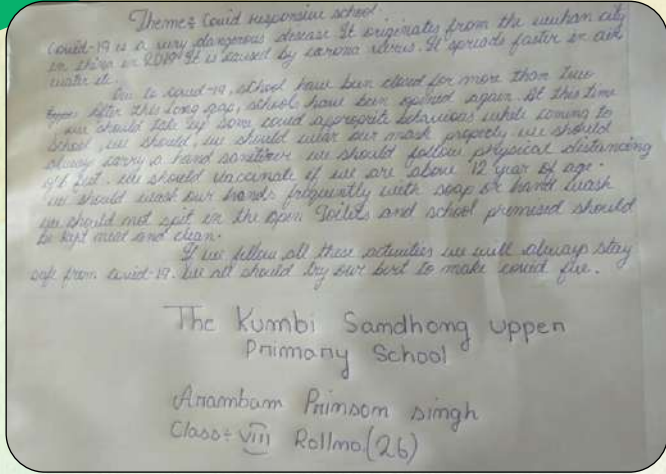 Theme: Covid responsive school.
Covid-19 is a very dangerous disease. It originates from the wuhan city
in china in 2019. It is caused by corona virus. It spreads faster in air
water etc.
Due to covid-19, school have been closed for more than two
After this long gap, schools have been opened again. At this time
we should take up some covid appropriate behaviours while coming to
school, we should, we should wear our mask properly, we should
always carry a hand sanitizer we should follow physical distancing
of 6 feet. we should vaccinate if we are above 12 year of age.
we should wash our hands frequently with soap or hand wash
we should not spit in the open. Toilets and school premised should
be kept neat and clean.
If we follow all these activities we will always stay
safe from covid-19. We all should try our best to make covid free.
The Kumbi Samdhong Upper
Primary School
Arambam Primsom singh
Class: viii Rollno.(26)